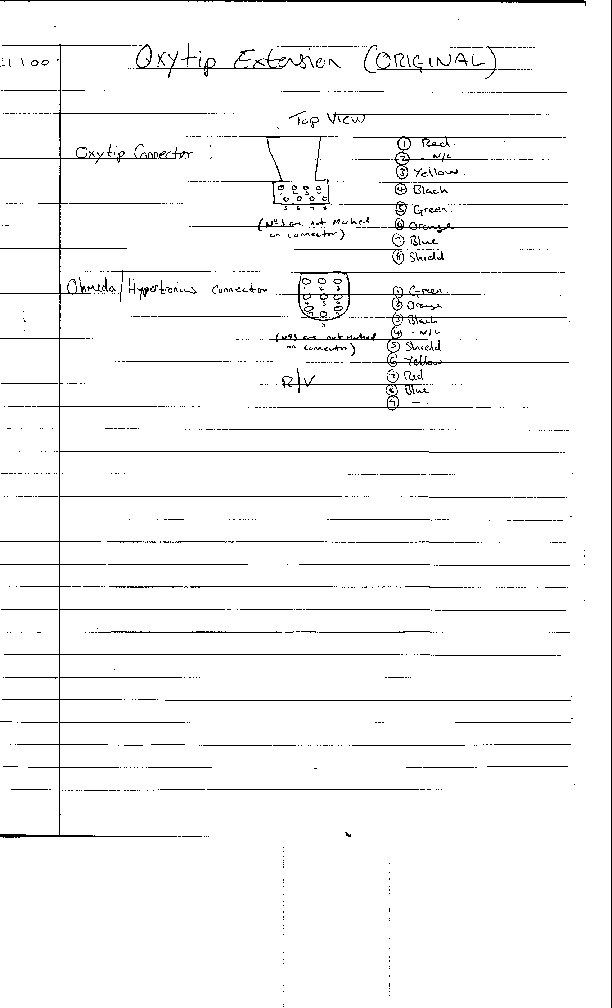 1100
Oxytip Extension (ORIGINAL)
Top View
Oxytip Connector :
① Red
② - N/C
③ Yellow
④ Black
⑤ Green
⑥ Orange
⑦ Blue
⑧ Shield
5 6 7 8
(Nºs are not Marked
on connector)
Ohmeda/Hypertronics Connector
(Nºs are not Marked
on connector)
R/V
① Green
② Orange
③ Black
④ - N/C
⑤ Shield
⑥ Yellow
⑦ Red
⑧ Blue
⑨ —